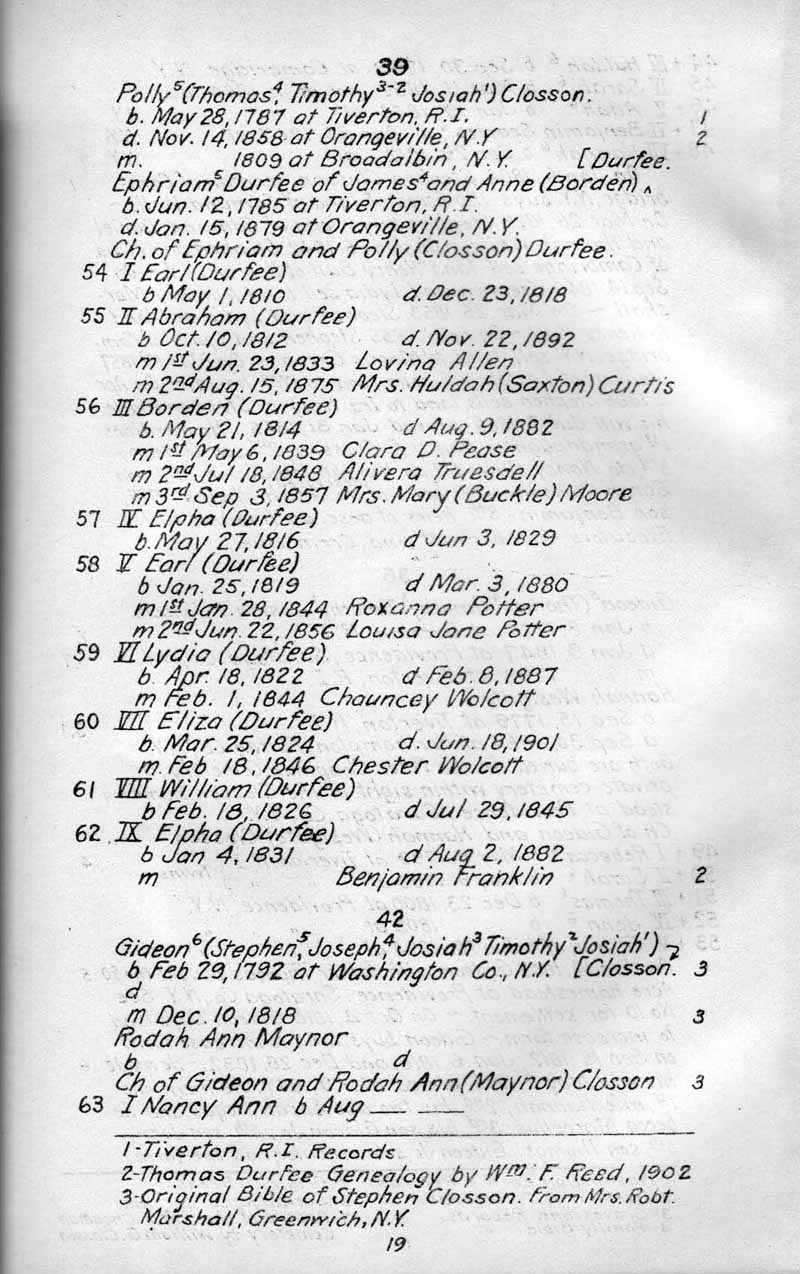 39
Polly⁵(Thomas,⁴ Timothy³⁻² Josiah¹) Closson.
b. May 28, 1787 at Tiverton, R.I. 1
d. Nov. 14, 1858 at Orangeville, N.Y 2
m. 1809 at Broadalbin, N.Y. [Durfee.
Ephriam⁵ Durfee of James⁴ and Anne (Borden) ‸
b. Jun. 12, 1785 at Tiverton, R.I.
d. Jan. 15, 1879 at Orangeville, N.Y.
Ch. of Ephriam and Polly (Closson) Durfee.
54 I Earl (Durfee)
b May 1, 1810 d. Dec. 23, 1818
55 II Abraham (Durfee)
b Oct. 10, 1812 d. Nov. 22, 1892
m 1st Jun. 23, 1833 Lovina Allen
m 2nd Aug. 15, 1875 Mrs. Huldah (Saxton) Curtis
56 III Borden (Durfee)
b. May 21, 1814 d Aug. 9, 1882
m 1st May 6, 1839 Clara D. Pease
m 2nd Jul 18, 1848 Alivera Truesdell
m 3rd Sep 3, 1857 Mrs. Mary (Buckle) Moore
57 IV Elpha (Durfee)
b. May 27, 1816 d Jun 3, 1829
58 V Earl (Durfee)
b Jan. 25, 1819 d Mar. 3, 1880
m 1st Jan. 28, 1844 Roxanna Potter
m 2nd Jun. 22, 1856 Louisa Jane Potter
59 VI Lydia (Durfee)
b. Apr. 18, 1822 d Feb. 8, 1887
m Feb. 1, 1844 Chauncey Wolcott
60 VII Eliza (Durfee)
b. Mar. 25, 1824 d. Jun. 18, 1901
m. Feb 18, 1846 Chester Wolcott
61 VIII William (Durfee)
b Feb. 18, 1826 d Jul 29, 1845
62 IX Elpha (Durfee)
b Jan 4, 1831 d Aug 2, 1882
m Benjamin Franklin 2
42
Gideon⁶ (Stephen,⁵ Joseph,⁴ Josiah³ Timothy² Josiah¹) ⁊
b Feb 29, 1792 at Washington Co., N.Y. [Closson. 3
d
m Dec. 10, 1818 3
Rodah Ann Maynor
b d
Ch of Gideon and Rodah Ann (Maynor) Closson 3
63 I Nancy Ann b Aug __ __
1-Tiverton, R.I. Records
2-Thomas Durfee Genealogy by Wm. F. Reed, 1902
3-Original Bible of Stephen Closson. From Mrs. Robt.
Marshall, Greenwich, N.Y.
19